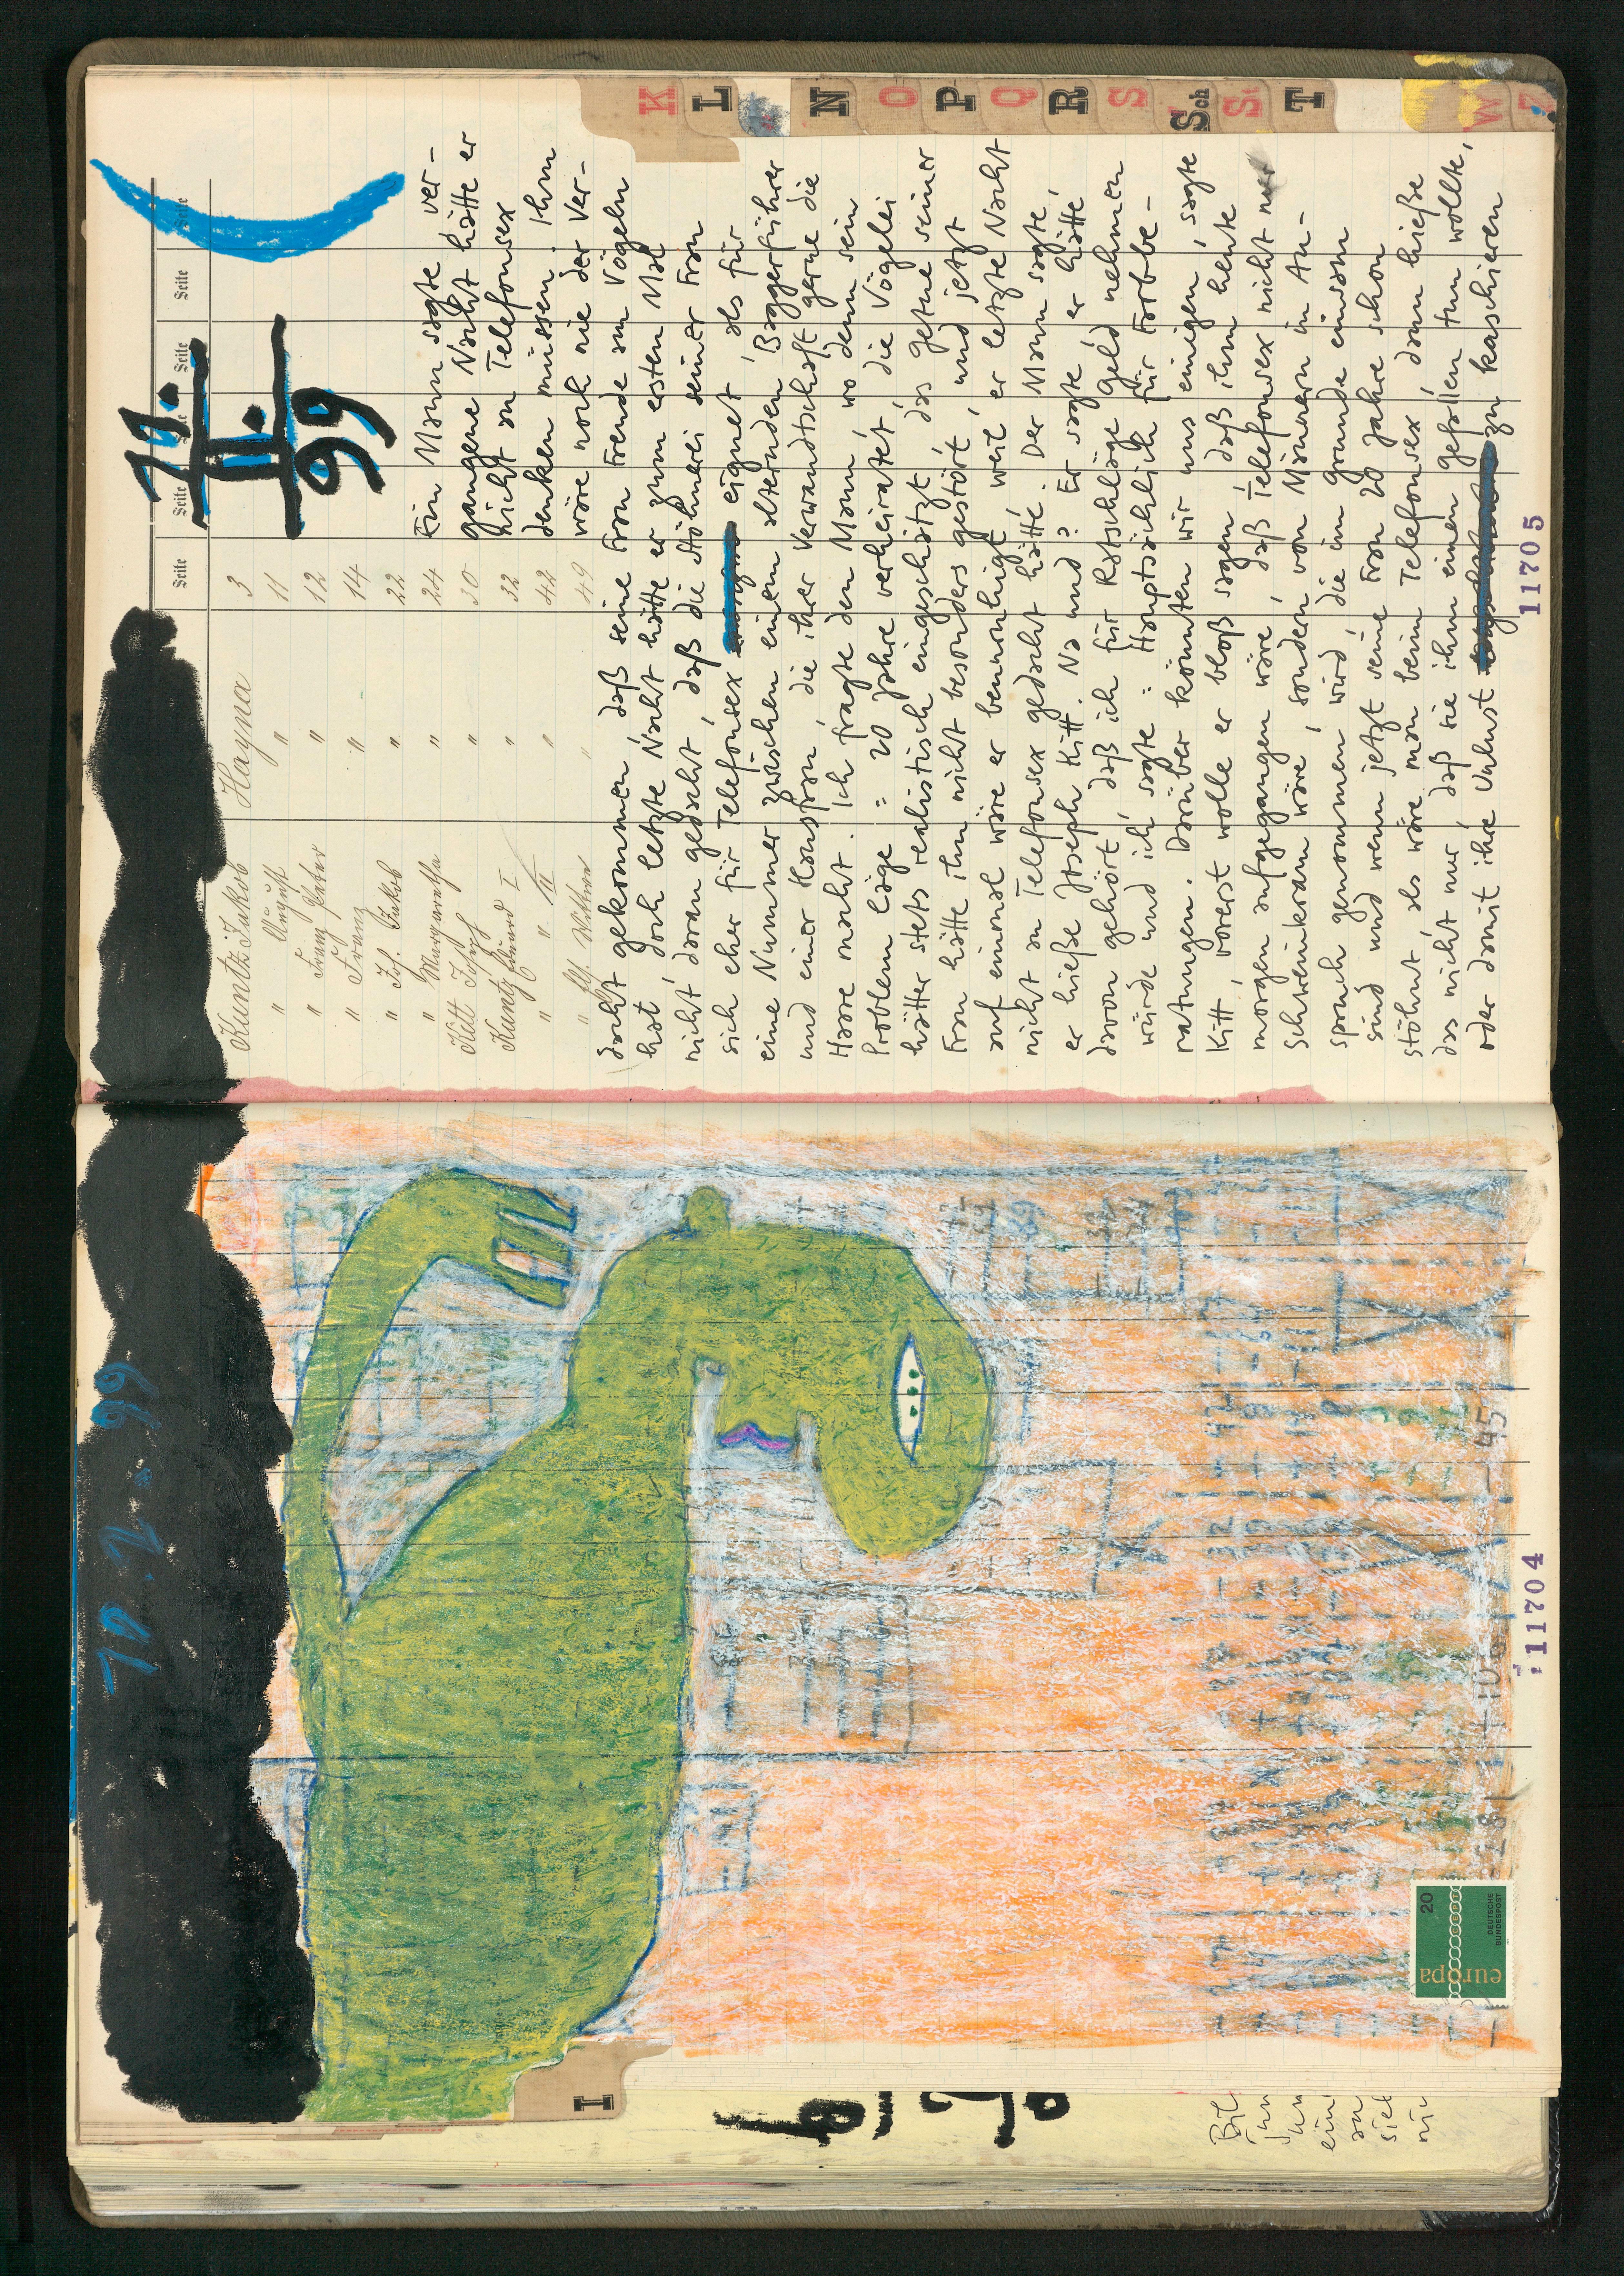 10. 2. 99
11704
20
europa
DEUTSCHE
BUNDESPOST
I
10.
II.
99
Seite Seite Seite Seite Seite Seite
Kuntz Jakob Hayna 3
" August " 11
" Franz Peter " 12
" Franz " 14
" Joh. Jakob " 22
" Margaretha " 24
Kitt Josef " 30
Kuntz Eduard I " 32
" " III " 42
" Witwe " 49
Ein Mann sagte, ver-
gangene Nacht hätte er
nicht an Telefonsex
denken müssen. Ihm
wäre noch nie der Ver-
dacht gekommen, daß seine Frau Freude am Vögeln
hat, doch letzte Nacht hätte er zum ersten Mal
nicht daran gedacht, daß die Stöhnerei seiner Frau
sich eher für Telefonsex eignet, als für
eine Nummer zwischen einem alternden Baggerführer
und einer Hausfrau, die ihrer Verwandtschaft gerne die
Haare macht. Ich fragte den Mann, wo denn sein
Problem läge = 20 Jahre verheiratet, die Vögelei
hätter stets realistisch eingeschätzt, das Getue seiner
Frau hätte ihn nicht besonders gestört, und jetzt
auf einmal wäre er beunruhigt, weil er letzte Nacht
nicht an Telefonsex gedacht hätte. Der Mann sagte,
er hieße Joseph Kitt. Na und? Er sagte, er hätte
davon gehört, daß ich für Ratschläge Geld nehmen
würde und ich sagte = Hauptsächlich für Farbbe-
ratungen. Darüber könnten wir uns einigen, sagte
Kitt, vorerst wolle er bloß sagen, daß ihm heute
morgen aufgegangen wäre, daß Telefonsex nicht nur
Schweinkram wäre, sondern von Männern in An-
spruch genommen wird, die im Grunde einsam
sind und wenn jetzt seine Frau 20 Jahre schon
stöhnt als wäre man beim Telefonsex, dann hieße
das nicht nur, daß sie ihm einen Gefallen tun wollte,
oder damit ihre Unlust zu kaschieren
11705
K
L
N
O
P
Q
R
S
Sch
St
T
W
Z